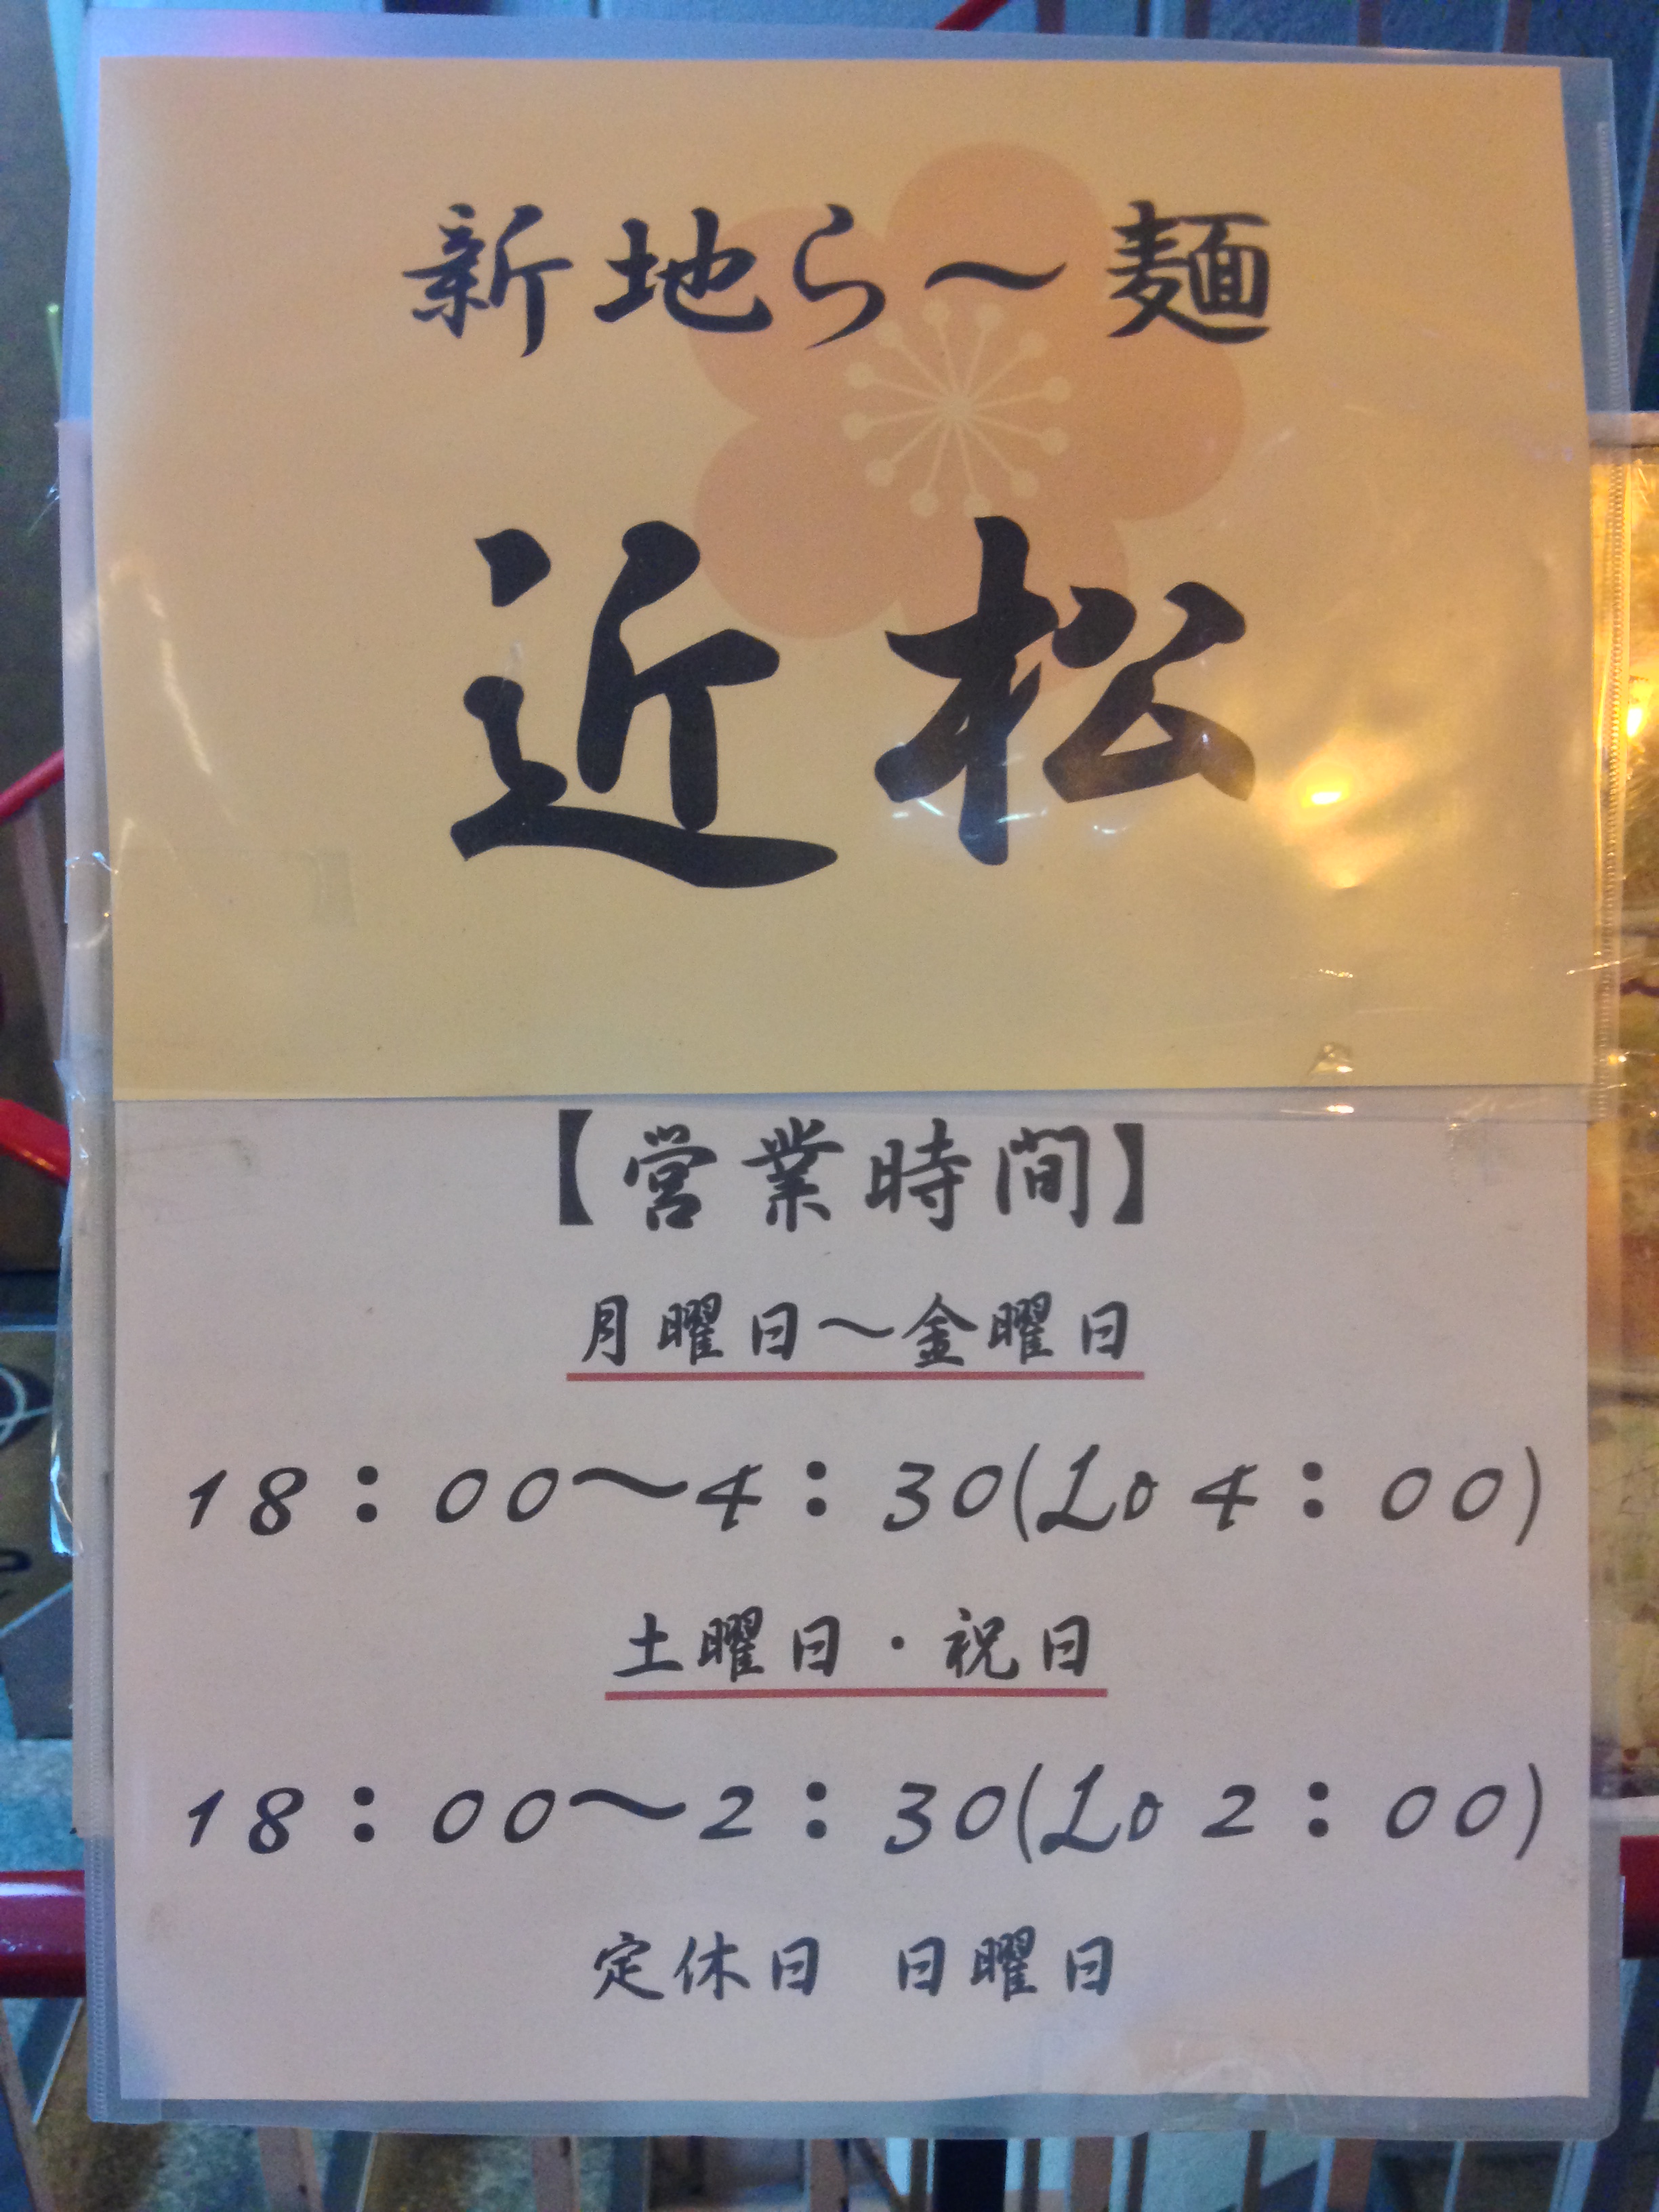 新地ら～麺
近松
【営業時間】
月曜日～金曜日
18：00～4：30(Lo 4：00)
土曜日・祝日
18：00～2：30(Lo 2：00)
定休日 日曜日